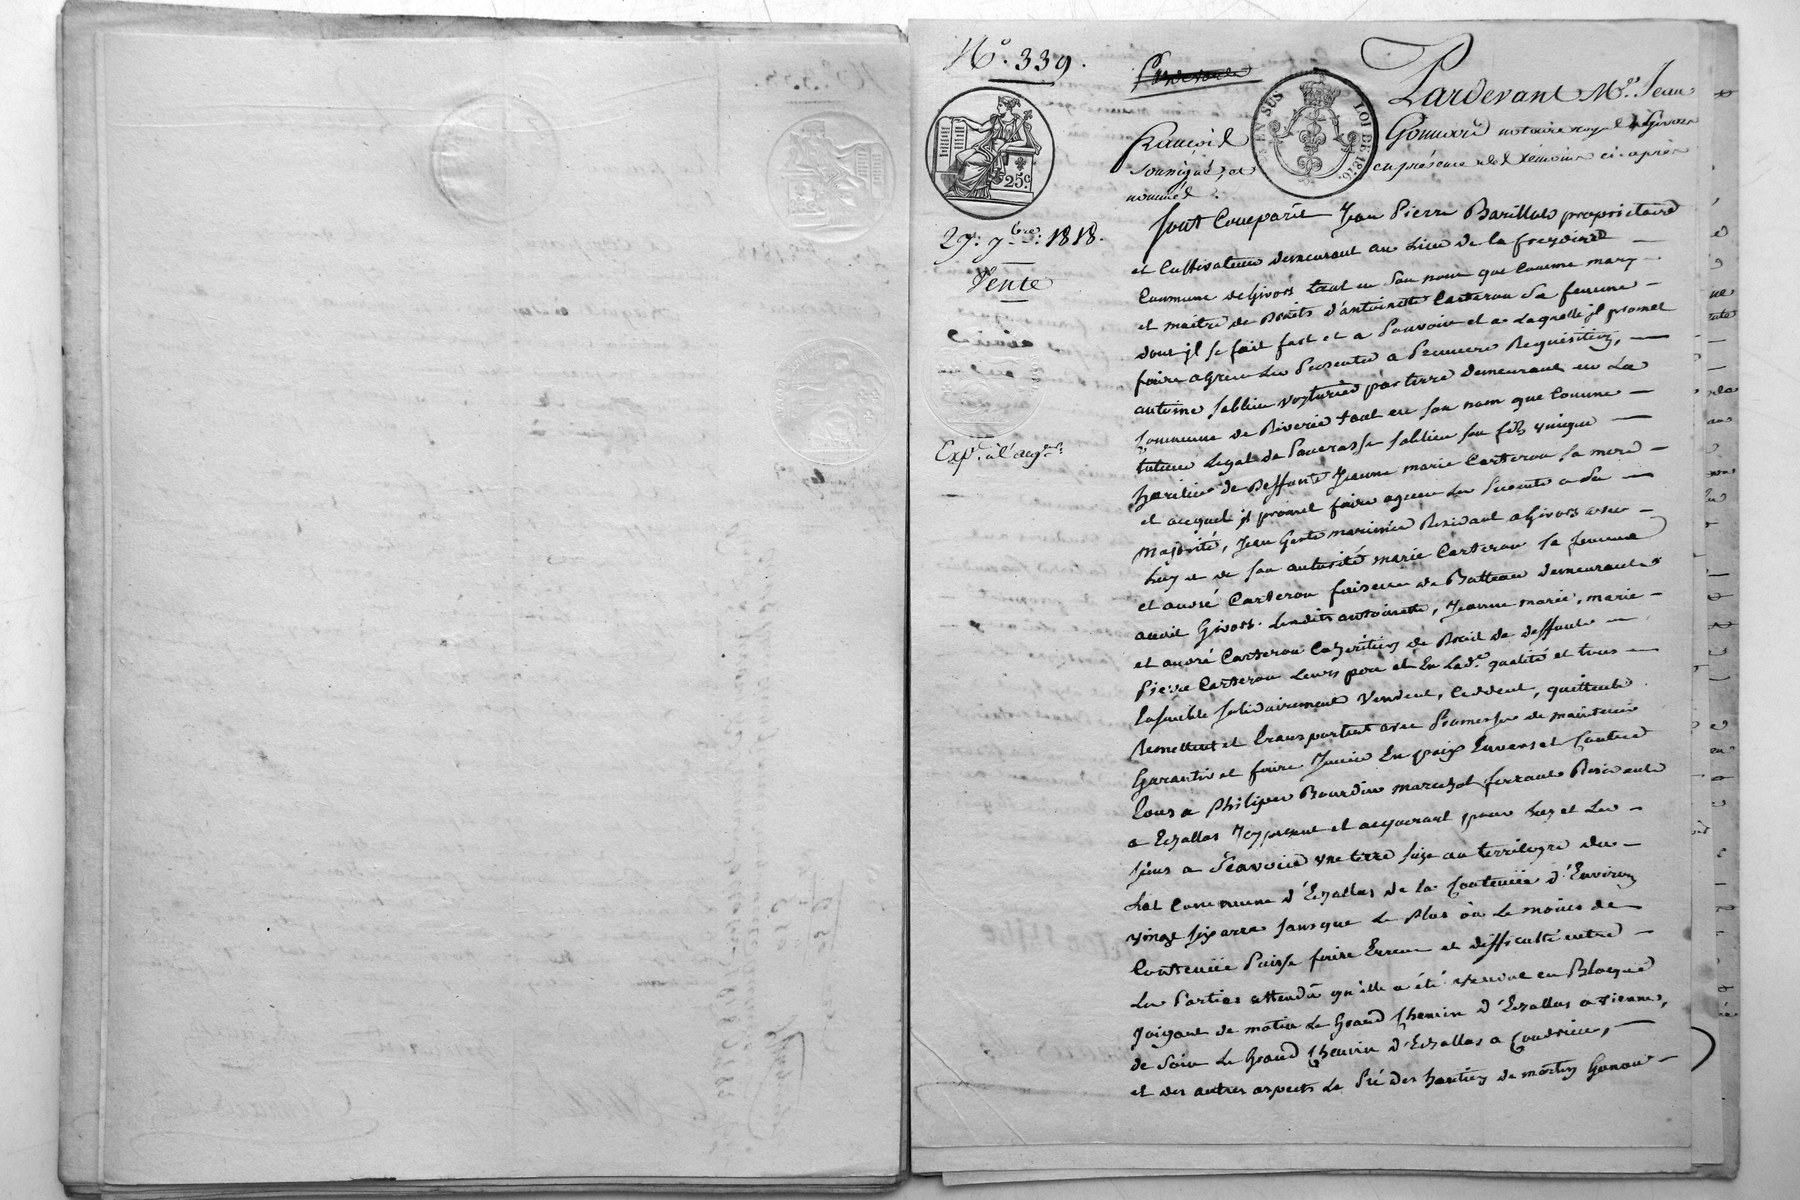 N.° 339.
Pardevant M.e Jean
EN SUS
LOI DE 1816.
25c.
François Gonnard notaire royal à Givors
soussigné, et en présence des témoins ci après
nommés.
29. 7.bre 1818.
Vente
Exp. à l'acq.r
Sont Comparû Jean Pierre Barillot propriétaire
et Cultivateur demeurant au Lieu de la freydiere
Commune de Givors tant en son nom que Comme mary
et maitre des Droits d'antoinette Carteron sa femme
dont jl se fait fort et a pouvoir et a Laquelle jl promet
faire agreer Les Presentes a Premiere Requisition,
antoine Sablier voyturier par terre demeurant en La
Commune de Riverie tant en son nom que Comme
tuteur Legal de Pancrasse Sablier son fils unique
héritier de Deffunte Jeanne marie Carteron sa mere
et auquel jl promet faire agreer Les Presentes a sa
majorité, Jean Gente marinier Residant a Givors avec
Luy et de son autorité marie Carteron sa femme
et andré Carteron faiseur de Batteau demeurants
audit Givors. Lesdits antoinette, Jeanne marie, marie
et andré Carteron Cohéritiers de Droit de deffunt
Pierre Carteron Leurs pere et En Lad.e qualité et tous
Ensemble solidairement Vendent, Ceddent, quittent
Remettent et transportent avec Promesse de maintenir
Garantir et faire Jouir En paix Envers et Contre
tous a Philipes Bourdin marechal ferrant Residant
a Echallas Icy present et acquerant pour Luy et Les
siens a Scavoir une terre size au territoyre du
Lat Commune d'Echallas de la Contenüe d'Environ
vingt six ares sans que Le Plus ou Le moins de
Contenüe Puisse faire Erreur et difficulté entre
Les Parties attendû qu'elle a été vendue en Bloque
Joignant de matin Le Grand Chemin d'Echallas a vienne,
de Soir Le Grand Chemin d'Echallas a Condrieu,
et des autres aspects Le Pré des hoeritiers de martin Ganou-